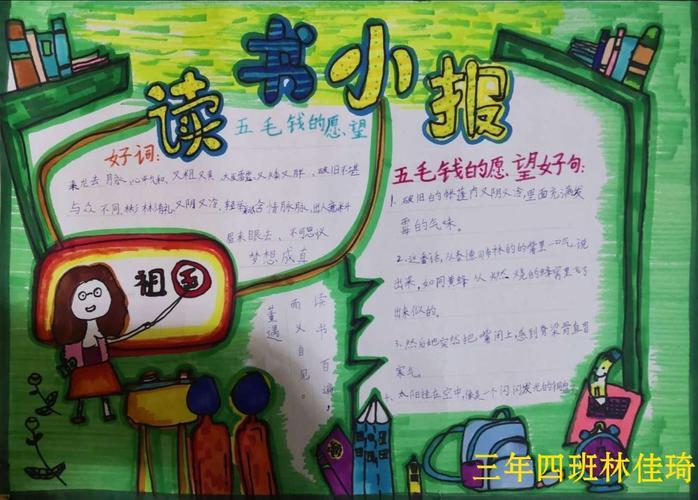 读书小报
五毛钱的愿望
好词:
来来去去 心平气和 又粗又大 又矮又胖 破旧不堪
与众不同 彬彬有礼 又阴又冷 轻轻松松 含情脉脉 出人意料
眉来眼去 不可思议
梦想成真
祖国
读书百遍,
而义自见。
董遇
五毛钱的愿望好句:
1. 破旧的帐篷内又阴又凉,里面充满发
霉的气味。
2. 这番话,从泰德的嘴里一口气说
出来,如同黄蜂从燃烧的蜂窝里飞了
出来似的。
3. 然后她突然把嘴闭上,感到脊梁骨直冒
4. 太阳挂在空中,像是一个闪闪发光的
三年四班林佳琦